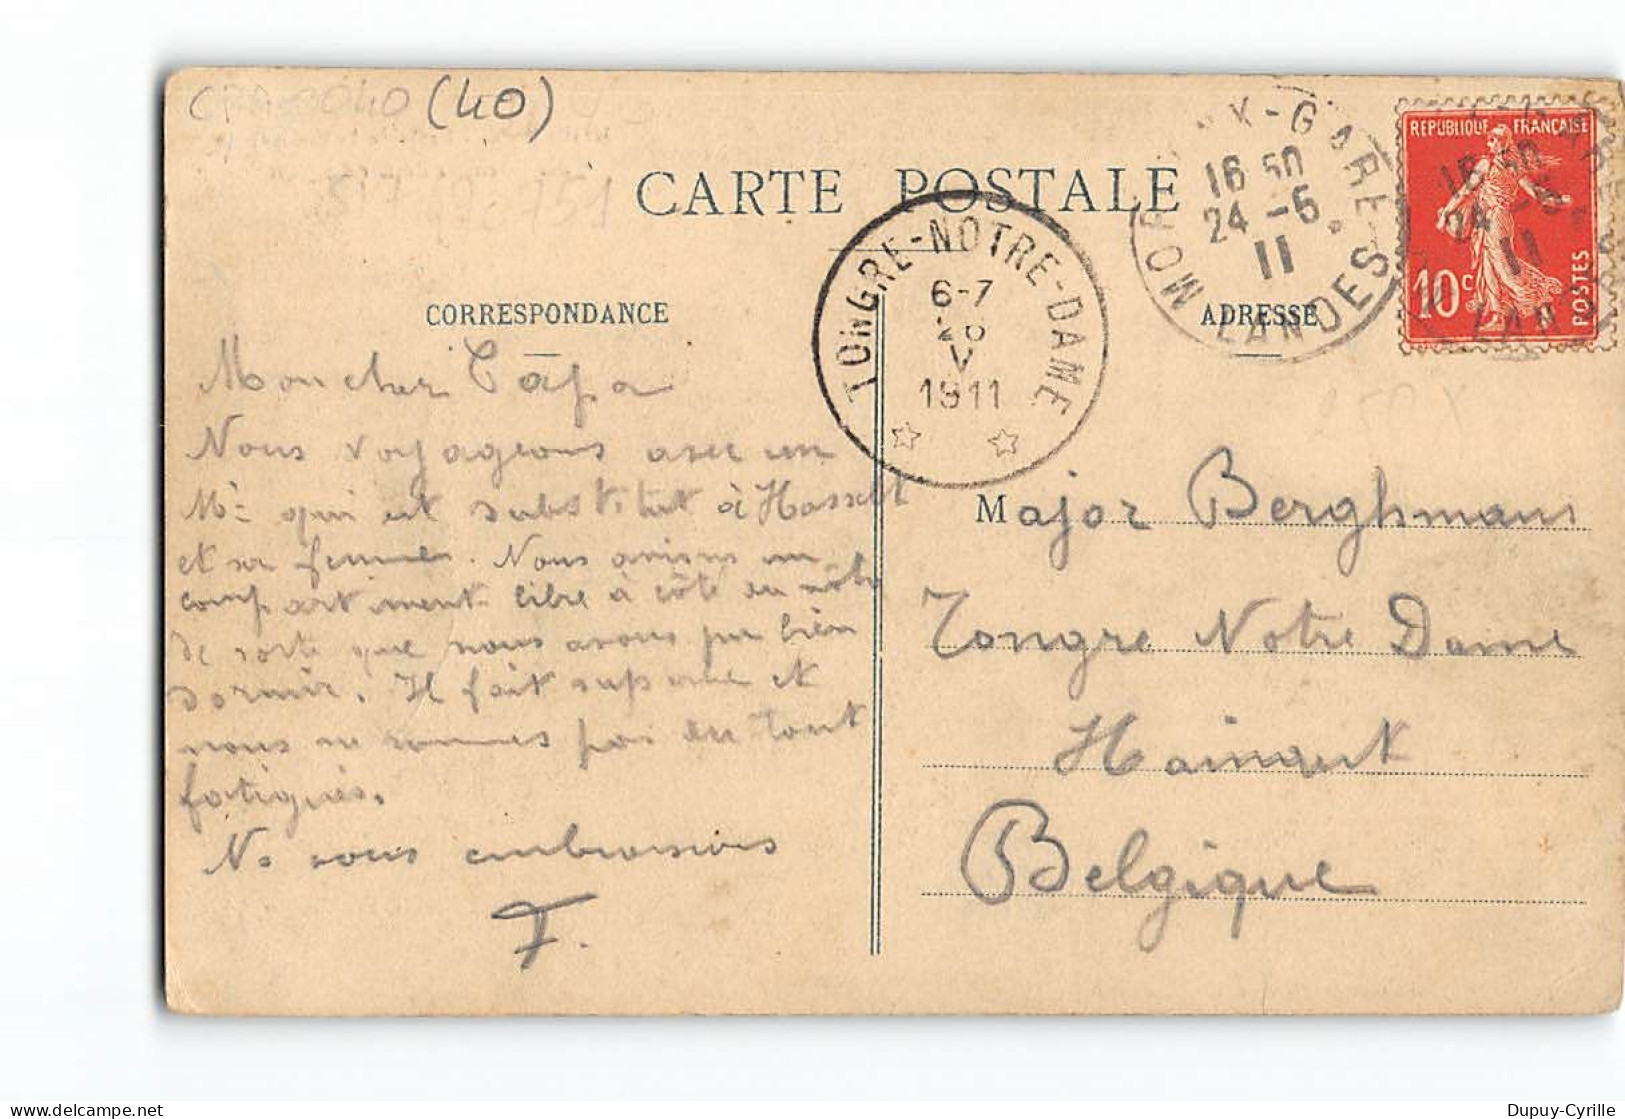 (40)
CARTE POSTALE
CORRESPONDANCE
ADRESSE
TONGRE-NOTRE-DAME
6-7
V
1911
X-GARE
LANDES
16 50
24 -5
11
REPUBLIQUE FRANÇAISE
10c
POSTES
Mon cher Papa
Nous voyageons avec un
Mr qui est substitut à Hasselt
et sa femme. Nous avions un
compartiment libre à côté du nôtre
de sorte que nous avons pu bien
dormir. Il fait superbe et
nous ne sommes pas du tout
fatigués.
Ns vous embrassons
F.
Major Berghmans
Tongre Notre Dame
Hainaut
Belgique
Dupuy-Cyrille